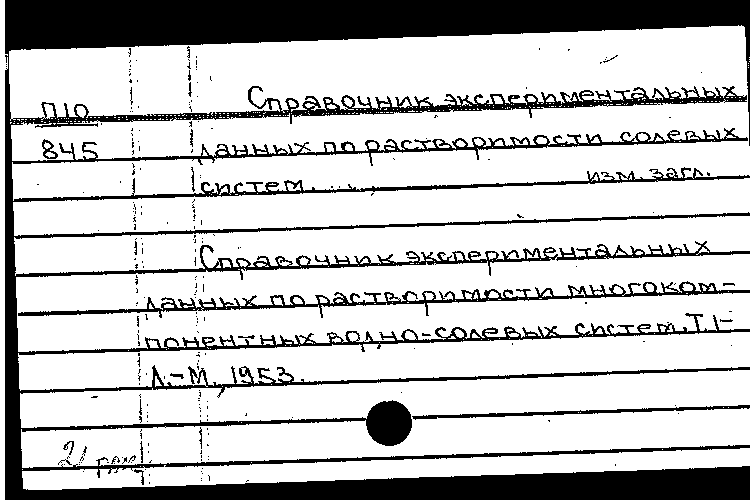 П10 Справочник экспериментальных
845 данных по растворимости солевых
систем. . . . , изм. загл.
Справочник экспериментальных
данных по растворимости многоком-
понентных водно-солевых систем. Т.1-
Л.-М., 1953.
21